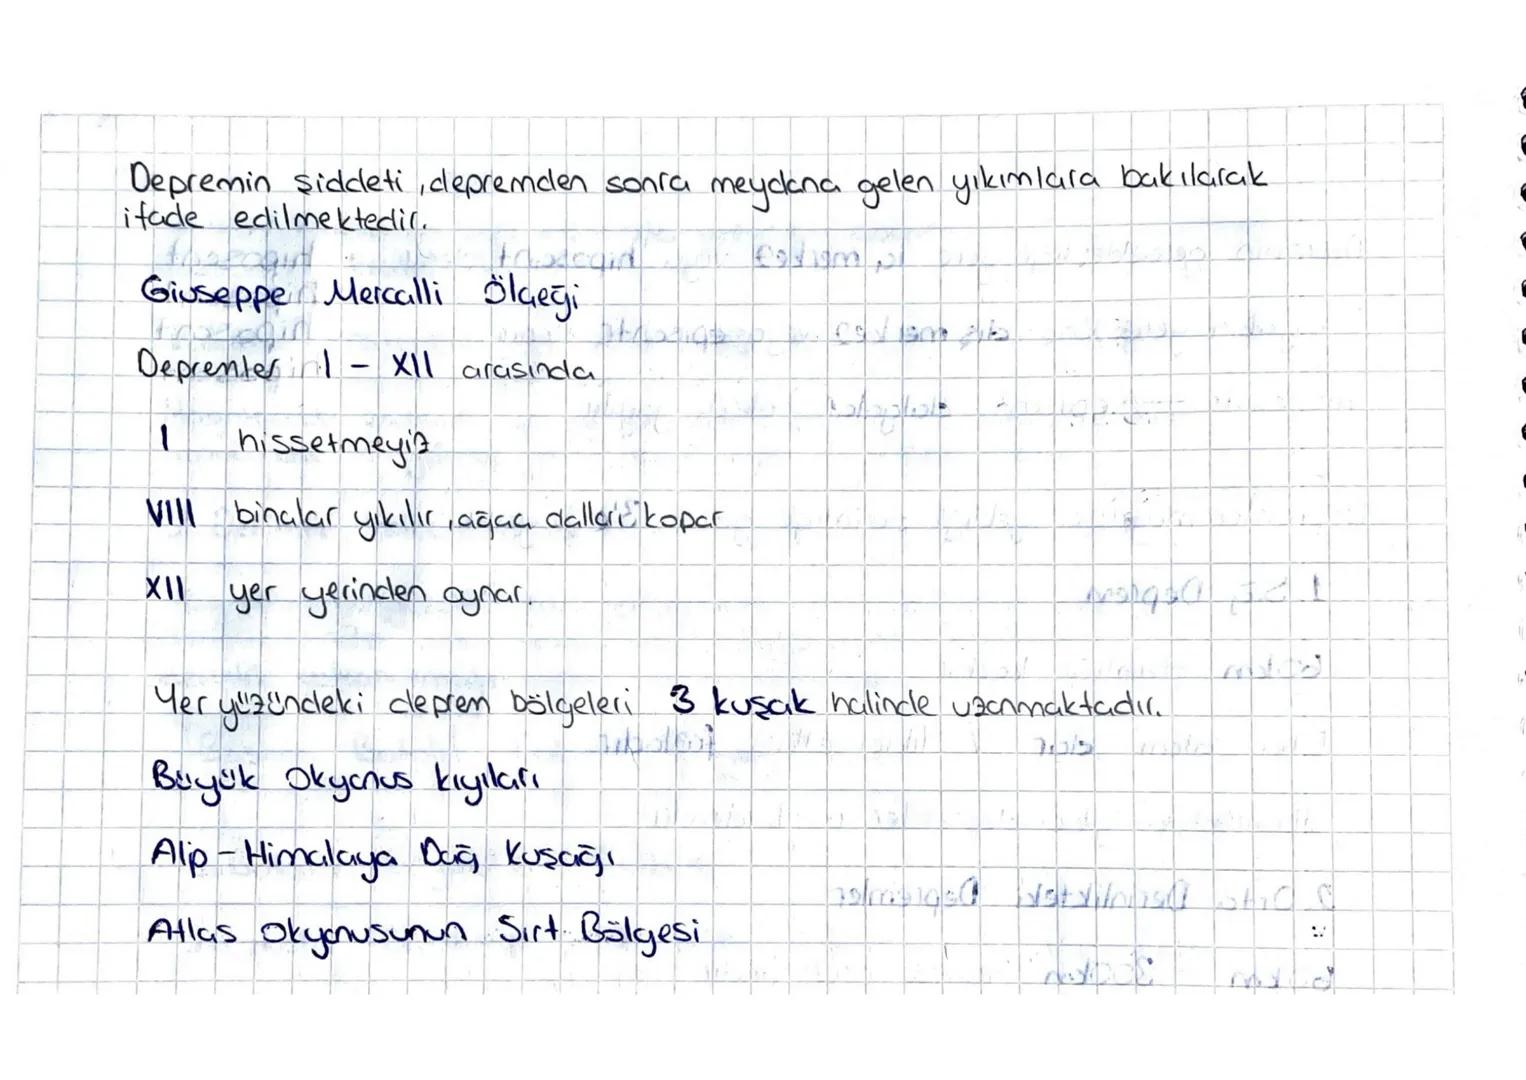 Depremin şiddeti, depremden sonra meydana gelen yıkımlara bakılarak
ifade edilmektedir.
Giuseppe Mercalli Ölçeği
Depremler I - XII arasında
I hissetmeyiz
VIII binalar yıkılır, ağaç dalları kopar
XII yer yerinden oynar.
Yer yüzündeki deprem bölgeleri 3 kuşak halinde uzanmaktadır.
Büyük Okyanus kıyıları
Alp-Himalaya Dağ Kuşağı
Atlas Okyanusunun Sırt Bölgesi